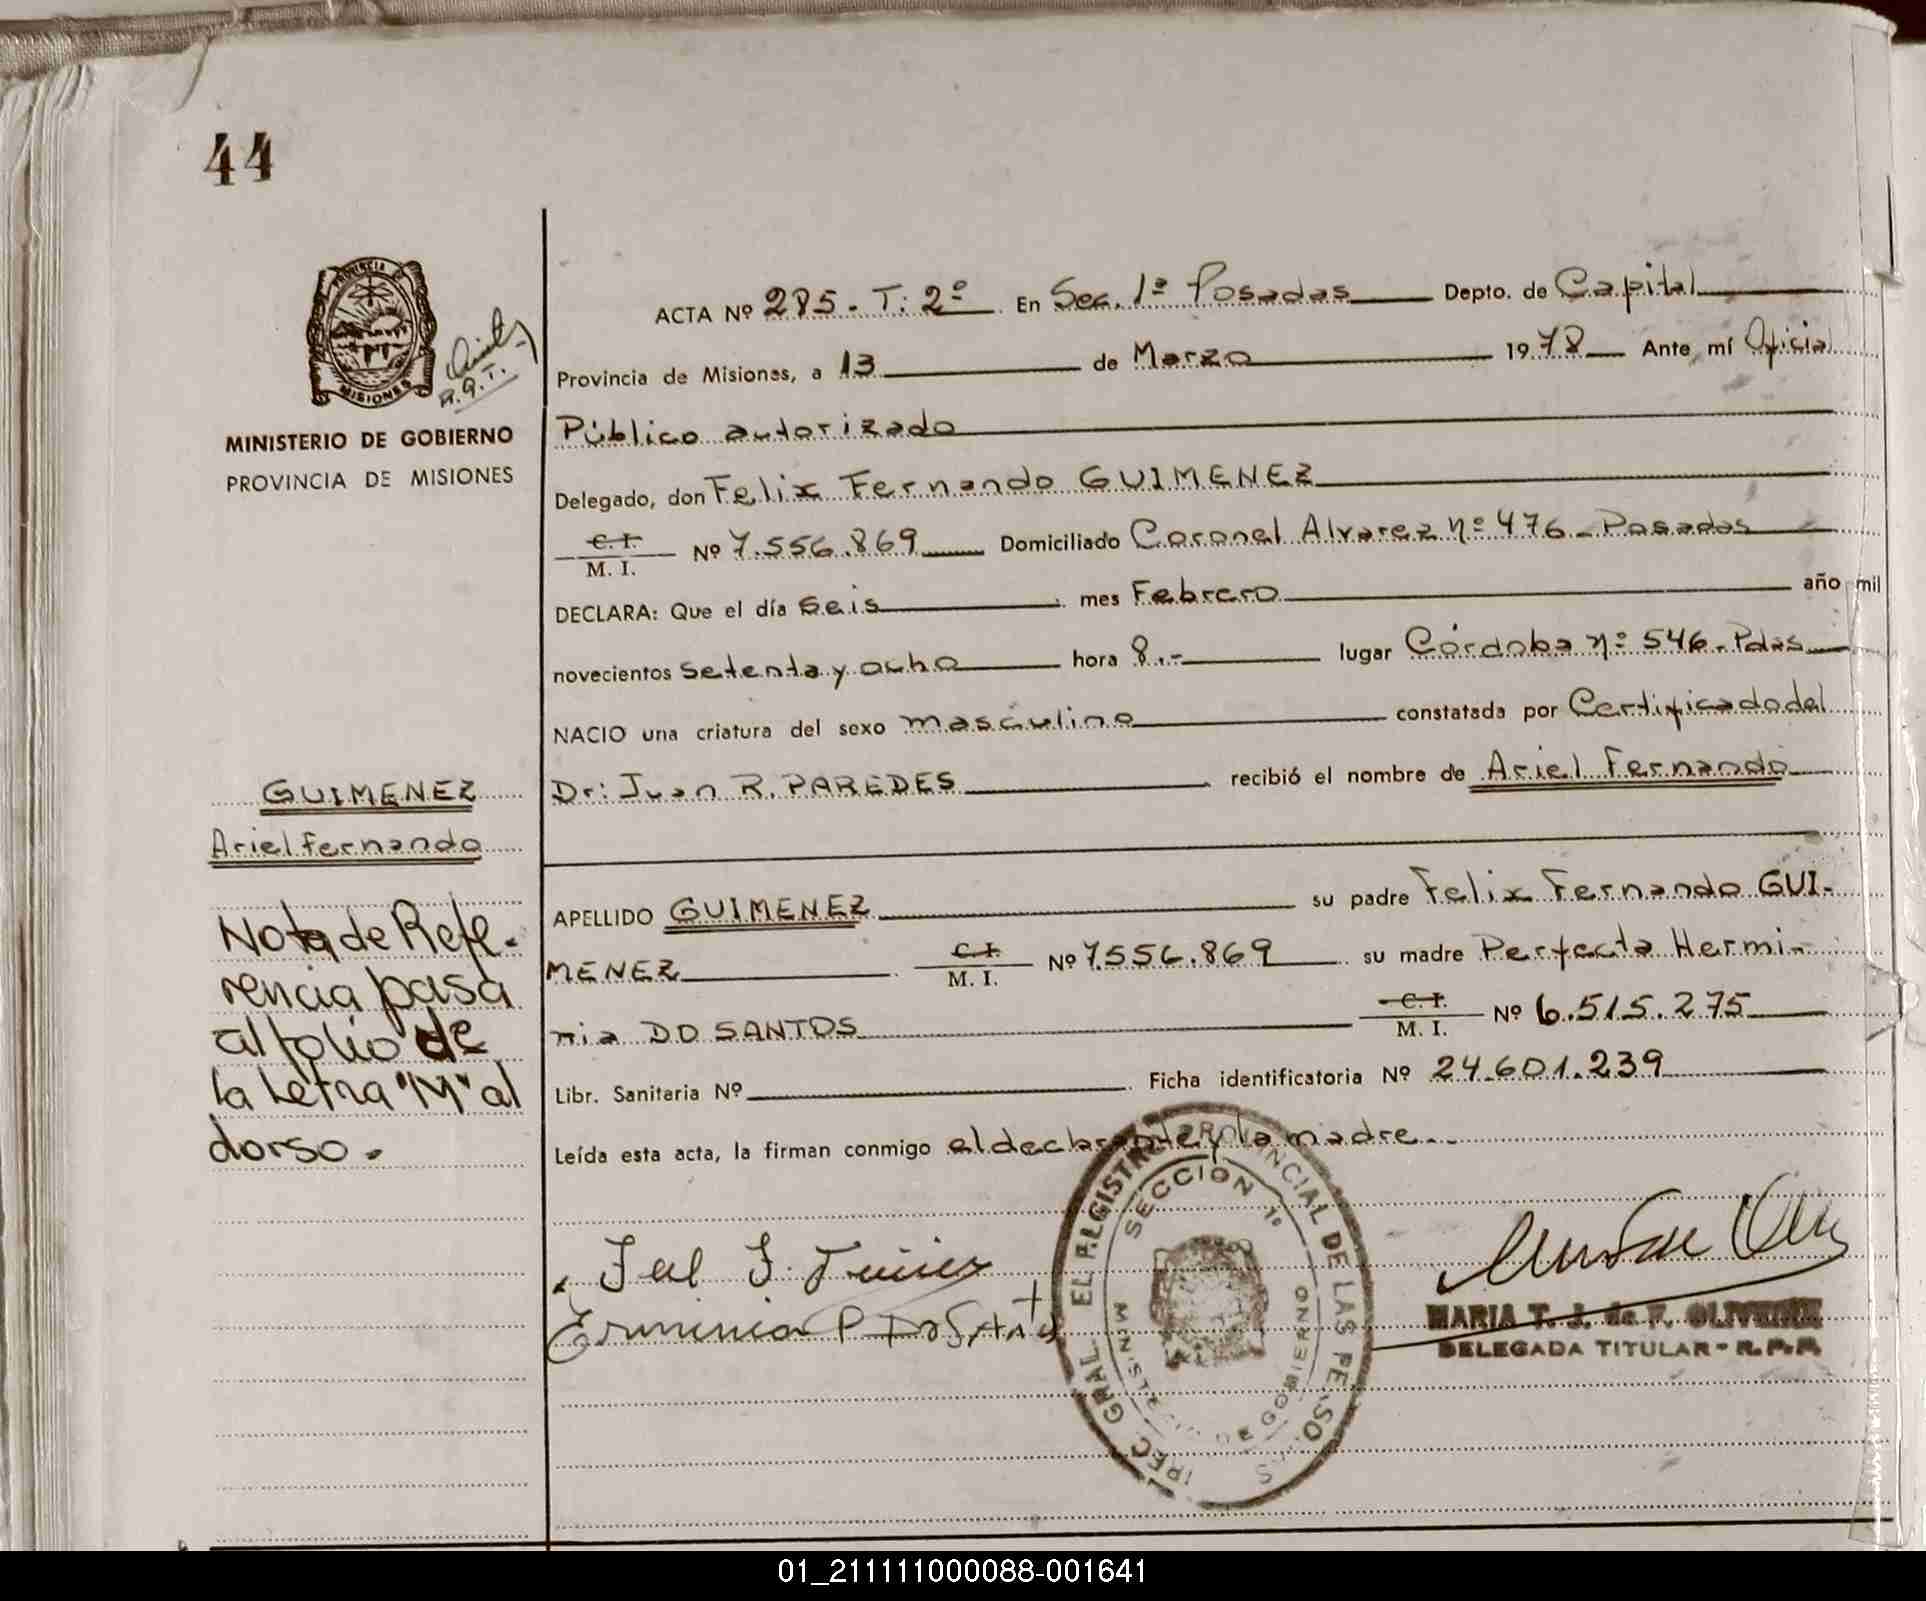 44
PROVINCIA DE
MISIONES
R.P.T.
MINISTERIO DE GOBIERNO
PROVINCIA DE MISIONES
ACTA Nº 285.- T: 2º En Sec. 1ª Posadas Depto. de Capital
Provincia de Misiones, a 13 de Marzo 1978 Ante mí Oficial
Público autorizado
Delegado, don Felix Fernando GUIMENEZ
C. I.
M. I. Nº 7.556.869 Domiciliado Coronel Alvarez nº 476 - Posadas
DECLARA: Que el día seis mes Febrero año mil
novecientos setenta y ocho hora 8.- lugar Córdoba nº 546. Pdas
NACIO una criatura del sexo masculino constatada por Certificado del
Dr: Juan R. PAREDES recibió el nombre de Ariel Fernando
GUIMENEZ
Ariel Fernando
Nota de Refe-
rencia pasa
al folio de
la Letra "M" al
dorso.
APELLIDO GUIMENEZ su padre Felix Fernando GUI-
MENEZ C. I. M. I. Nº 7.556.869 su madre Perfecta Hermi-
nia DO SANTOS C. I. M. I. Nº 6.515.275
Libr. Sanitaria Nº Ficha identificatoria Nº 24.601.239
Leída esta acta, la firman conmigo el declarante y la madre.-
Erminia P DoSantos
GRAL. DEL REGISTRO PROVINCIAL DE LAS PERSONAS
SECCION 1º
MINISTERIO DE GOBIERNO
MARIA T. J. de F. OLIVEIRA
DELEGADA TITULAR - R.P.P.
01_211111000088-001641